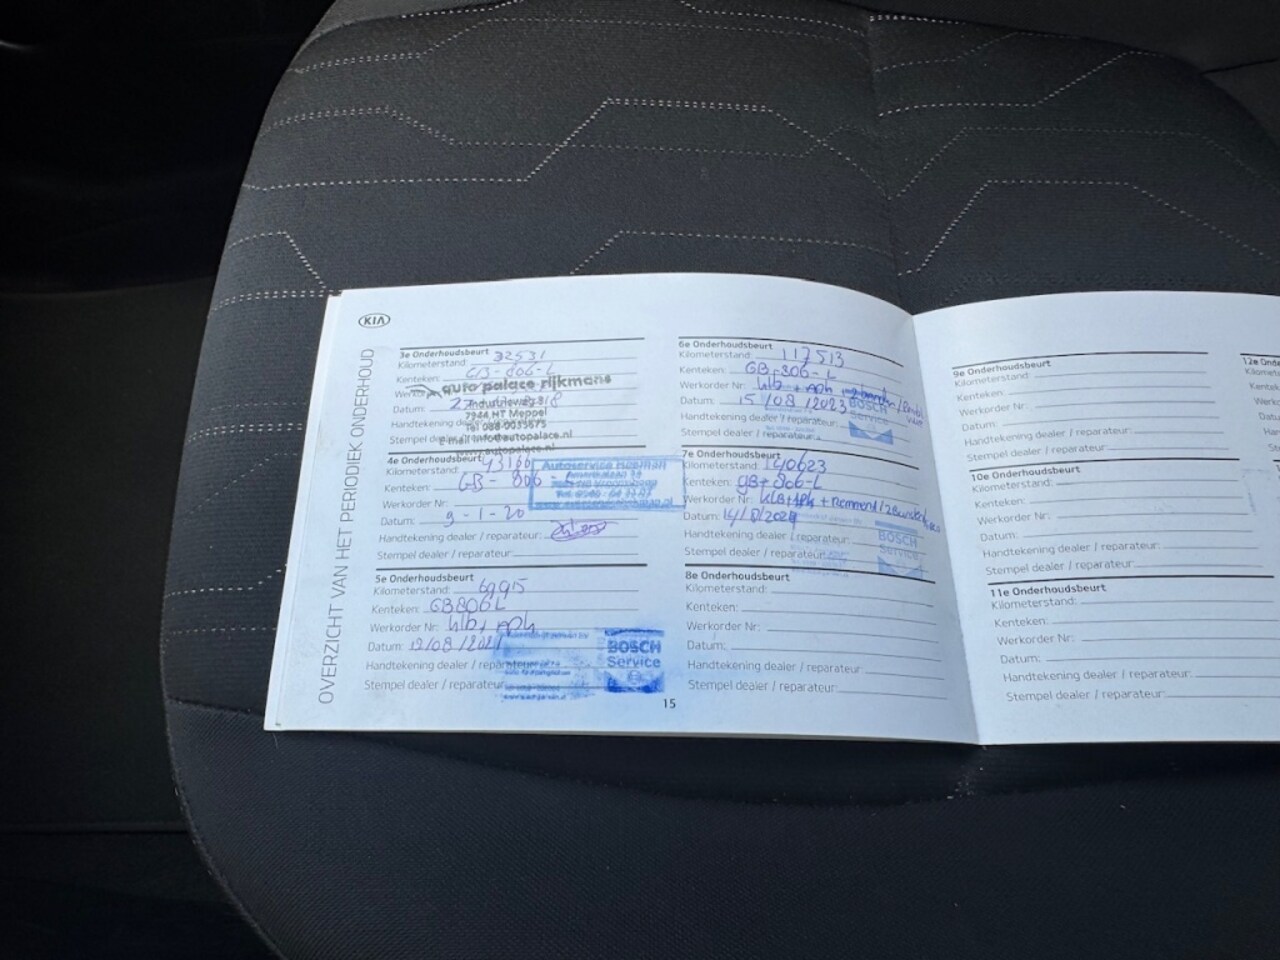 KIA
OVERZICHT VAN HET PERIODIEK ONDERHOUD
3e Onderhoudsbeurt
Kilometerstand: 32531
Kenteken: GB-806-L
auto palace rijkmans
Industrieweg
Datum:
7944 HT Meppel
Handtekening
Tel 088-0035675
Stempel
E-mail info@autopalace.nl
4e Onderhoudsbeurt
Kilometerstand: 43166
Autoservice
Kenteken: GB-806
Werkorder Nr:
Datum: 9-1-20
Handtekening dealer / reparateur:
Stempel dealer / reparateur:
5e Onderhoudsbeurt
Kilometerstand: 69915
Kenteken: GB806L
Werkorder Nr: klb + apk
Datum: 19/08/2021
BOSCH
Service
Handtekening dealer / reparateur
Stempel dealer / reparateur:
6e Onderhoudsbeurt
Kilometerstand: 117513
Kenteken: GB-806-L
Werkorder Nr: klb + apk
Datum: 15/08/2023
BOSCH
Service
Handtekening dealer / reparateur:
Stempel dealer / reparateur:
7e Onderhoudsbeurt
Kilometerstand: 140623
Kenteken: GB-806-L
Werkorder Nr: klb + apk +
Datum: 14/8/2024
Handtekening dealer / reparateur:
BOSCH
Service
Stempel dealer / reparateur:
8e Onderhoudsbeurt
Kilometerstand:
Kenteken:
Werkorder Nr:
Datum:
Handtekening dealer / reparateur:
Stempel dealer / reparateur:
15
9e Onderhoudsbeurt
Kilometerstand:
Kenteken:
Werkorder Nr:
Datum:
Handtekening dealer / reparateur:
Stempel dealer / reparateur:
10e Onderhoudsbeurt
Kilometerstand:
Kenteken:
Werkorder Nr:
Datum:
Handtekening dealer / reparateur:
Stempel dealer / reparateur:
11e Onderhoudsbeurt
Kilometerstand:
Kenteken:
Werkorder Nr:
Datum:
Handtekening dealer / reparateur:
Stempel dealer / reparateur:
12e Onde